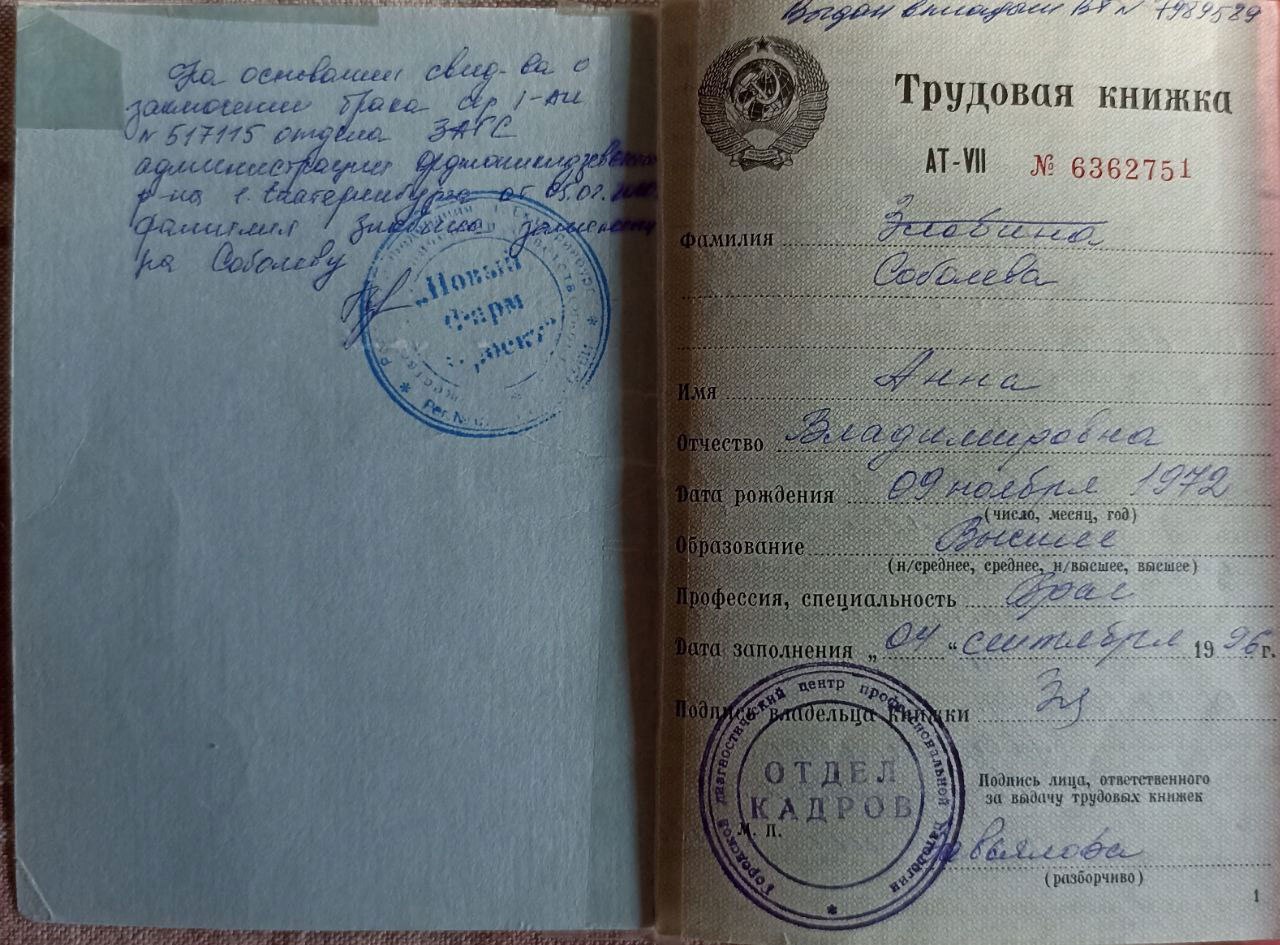 На основании свид-ва о
заключении брака сер I-АИ
№ 517115 отдела ЗАГС
администрации Орджоникидзевского
р-на г. Екатеринбурга от 05.02.
фамилия Зловина заменена
на Соболеву
„Новый
Фарм
Рег. №
Выдан вкладыш ВТ № 7989589
Трудовая книжка
АТ-VII № 6362751
Фамилия Зловина
Соболева
Имя Анна
Отчество Владимировна
Дата рождения 09 ноября 1972
(число, месяц, год)
Образование Высшее
(н/среднее, среднее, н/высшее, высшее)
Профессия, специальность Врач
Дата заполнения „04“ сентября 1996 г.
Подпись владельца книжки
Городской диагностический центр профессиональной патологии
ОТДЕЛ
КАДРОВ
М. П.
Подпись лица, ответственного
за выдачу трудовых книжек
Завьялова
(разборчиво)
1